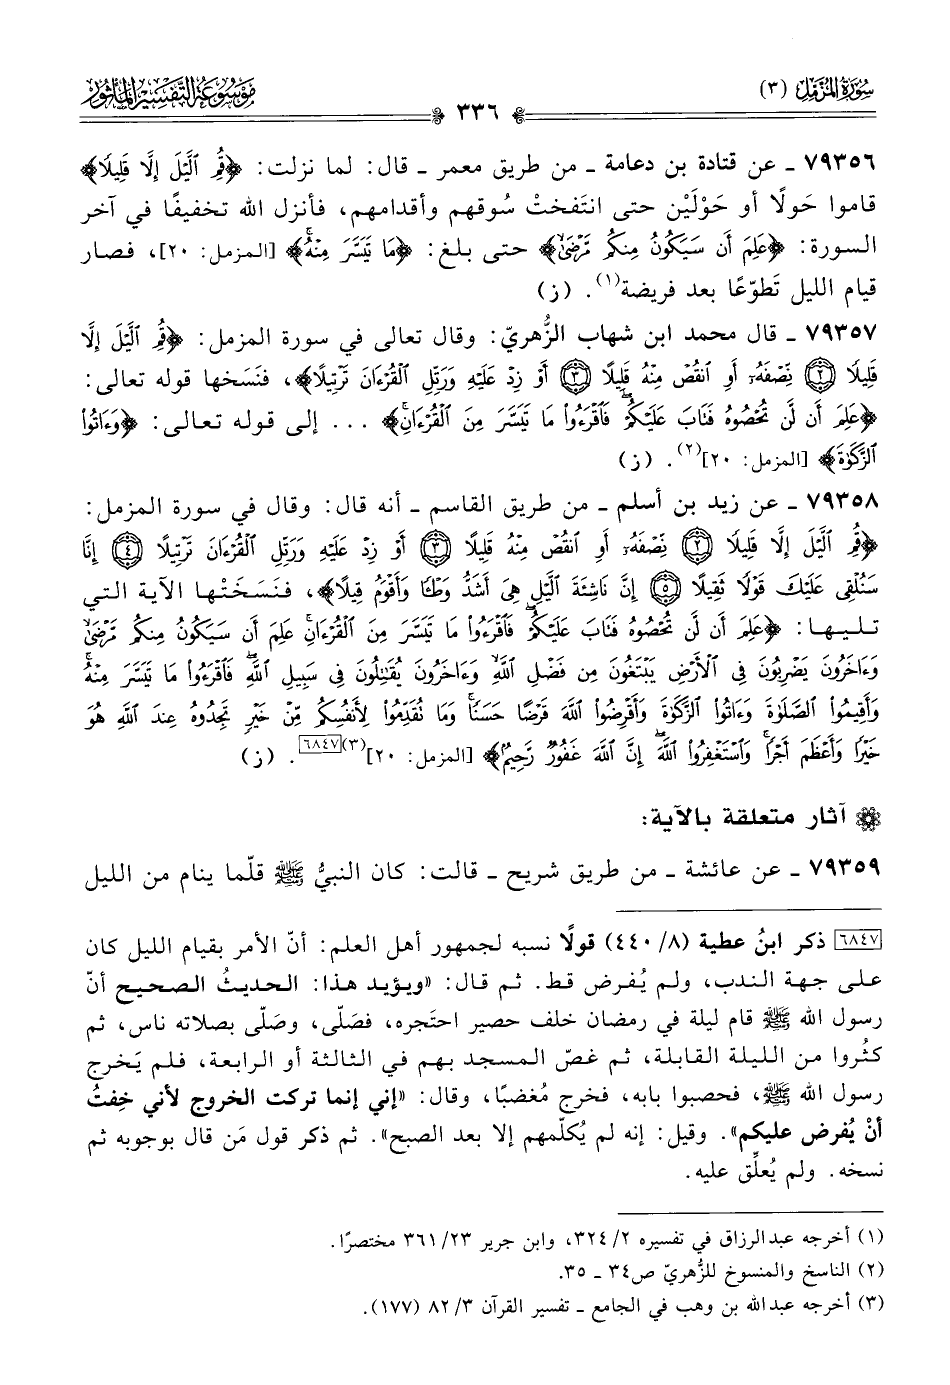 سُورَةُ المُزَّمِّل (٣)
٣٣٦
مَوْسُوعَةُ التَّفْسِيرِ المَأْثُور
٧٩٣٥٦ ـ عن قتادة بن دعامة ـ من طريق معمر ـ قال: لما نزلت: ﴿قُمِ ٱلَّيْلَ إِلَّا قَلِيلًا﴾
قاموا حَولًا أو حَوْلَيْن حتى انتَفختْ سُوقهم وأقدامهم، فأنزل الله تخفيفًا في آخر
السورة: ﴿عَلِمَ أَن سَيَكُونُ مِنكُم مَّرْضَىٰ﴾ حتى بلغ: ﴿مَا تَيَسَّرَ مِنْهُ﴾ [المزمل: ٢٠]، فصار
قيام الليل تَطوّعًا بعد فريضة(١). (ز)
٧٩٣٥٧ ـ قال محمد ابن شهاب الزُّهريّ: وقال تعالى في سورة المزمل: ﴿قُمِ ٱلَّيْلَ إِلَّا
قَلِيلًا ٢ نِّصْفَهُۥٓ أَوِ ٱنقُصْ مِنْهُ قَلِيلًا ٣ أَوْ زِدْ عَلَيْهِ وَرَتِّلِ ٱلْقُرْءَانَ تَرْتِيلًا﴾، فنَسَخها قوله تعالى:
﴿عَلِمَ أَن لَّن تُحْصُوهُ فَتَابَ عَلَيْكُمْ فَٱقْرَءُوا۟ مَا تَيَسَّرَ مِنَ ٱلْقُرْءَانِ﴾ ... إلى قوله تعالى: ﴿وَءَاتُوا۟
ٱلزَّكَوٰةَ﴾ [المزمل: ٢٠](٢). (ز)
٧٩٣٥٨ ـ عن زيد بن أسلم ـ من طريق القاسم ـ أنه قال: وقال في سورة المزمل:
﴿قُمِ ٱلَّيْلَ إِلَّا قَلِيلًا ٢ نِّصْفَهُۥٓ أَوِ ٱنقُصْ مِنْهُ قَلِيلًا ٣ أَوْ زِدْ عَلَيْهِ وَرَتِّلِ ٱلْقُرْءَانَ تَرْتِيلًا ٤ إِنَّا
سَنُلْقِى عَلَيْكَ قَوْلًا ثَقِيلًا ٥ إِنَّ نَاشِئَةَ ٱلَّيْلِ هِىَ أَشَدُّ وَطْـًٔا وَأَقْوَمُ قِيلًا﴾، فنَسَخَتْها الآية التي
تليها: ﴿عَلِمَ أَن لَّن تُحْصُوهُ فَتَابَ عَلَيْكُمْ فَٱقْرَءُوا۟ مَا تَيَسَّرَ مِنَ ٱلْقُرْءَانِ عَلِمَ أَن سَيَكُونُ مِنكُم مَّرْضَىٰ
وَءَاخَرُونَ يَضْرِبُونَ فِى ٱلْأَرْضِ يَبْتَغُونَ مِن فَضْلِ ٱللَّهِ وَءَاخَرُونَ يُقَٰتِلُونَ فِى سَبِيلِ ٱللَّهِ فَٱقْرَءُوا۟ مَا تَيَسَّرَ مِنْهُ
وَأَقِيمُوا۟ ٱلصَّلَوٰةَ وَءَاتُوا۟ ٱلزَّكَوٰةَ وَأَقْرِضُوا۟ ٱللَّهَ قَرْضًا حَسَنًا وَمَا تُقَدِّمُوا۟ لِأَنفُسِكُم مِّنْ خَيْرٍ تَجِدُوهُ عِندَ ٱللَّهِ هُوَ
خَيْرًا وَأَعْظَمَ أَجْرًا وَٱسْتَغْفِرُوا۟ ٱللَّهَ إِنَّ ٱللَّهَ غَفُورٌ رَّحِيمٌ﴾ [المزمل: ٢٠](٣)[٦٨٤٧]. (ز)
آثار متعلقة بالآية:
٧٩٣٥٩ ـ عن عائشة ـ من طريق شريح ـ قالت: كان النبيُّ ﷺ قلّما ينام من الليل
[٦٨٤٧] ذكر ابنُ عطية (٨/ ٤٤٠) قولًا نسبه لجمهور أهل العلم: أنّ الأمر بقيام الليل كان
على جهة الندب، ولم يُفرض قط. ثم قال: «ويؤيد هذا: الحديثُ الصحيح أنّ
رسول الله ﷺ قام ليلة في رمضان خلف حصير احتَجره، فصَلّى، وصَلّى بصلاته ناس، ثم
كثُروا من الليلة القابلة، ثم غصّ المسجد بهم في الثالثة أو الرابعة، فلم يَخرج
رسول الله ﷺ، فحصبوا بابه، فخرج مُغضبًا، وقال: «إني إنما تركت الخروج لأني خِفتُ
أنْ يُفرض عليكم». وقيل: إنه لم يُكلّمهم إلا بعد الصبح». ثم ذكر قول مَن قال بوجوبه ثم
نسخه. ولم يُعلِّق عليه.
(١) أخرجه عبدالرزاق في تفسيره ٢/ ٣٢٤، وابن جرير ٢٣/ ٣٦١ مختصرًا.
(٢) الناسخ والمنسوخ للزُّهريّ ص٣٤ ـ ٣٥.
(٣) أخرجه عبدالله بن وهب في الجامع ـ تفسير القرآن ٣/ ٨٢ (١٧٧).